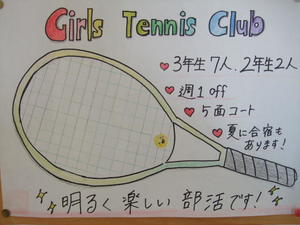 Girls Tennis Club
♥3年生7人、2年生2人
♥週1off
♥5面コート
♥夏に合宿も
あります!
明るく楽しい部活です!